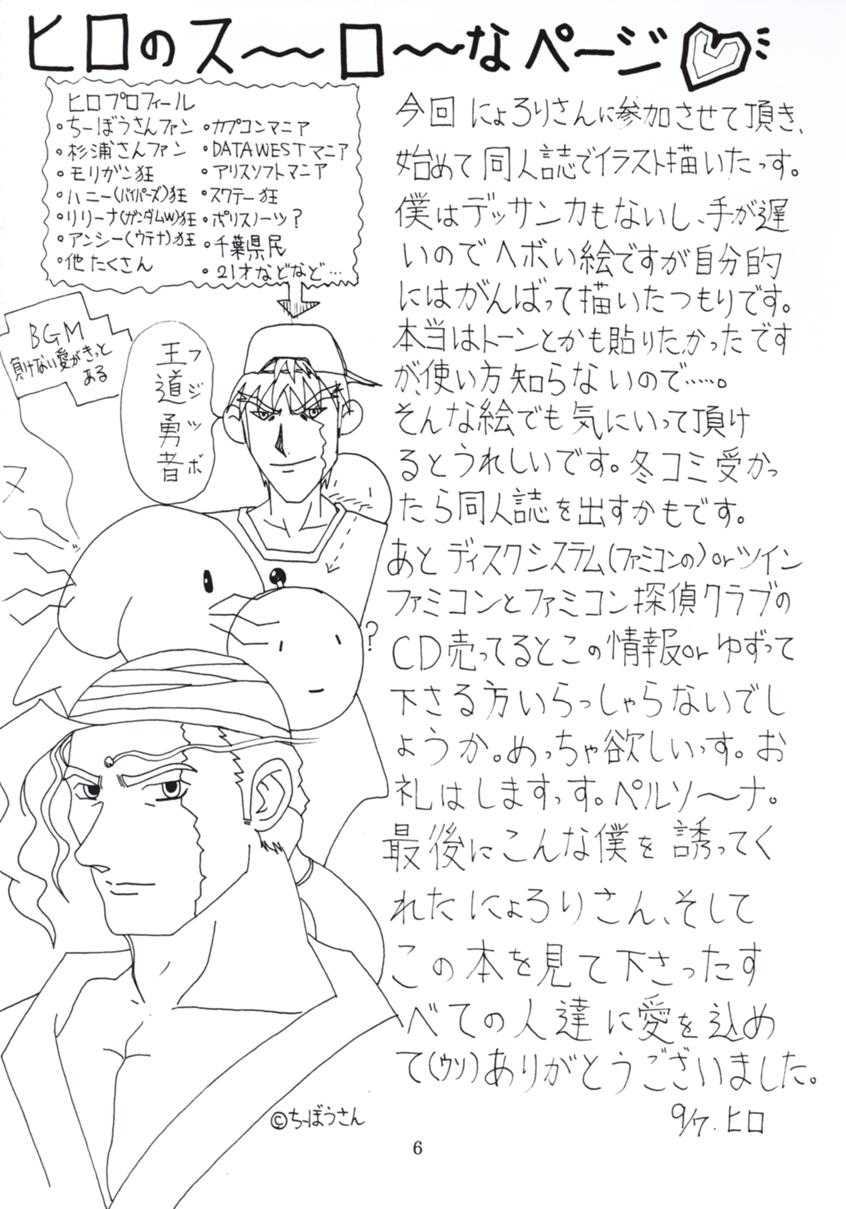 ヒロのス〜〜ロ〜〜なページ
ヒロプロフィール
・ちーぼうさんファン
・杉浦さんファン
・モリガン狂
・ハニー(バイパーズ)狂
・リリーナ(ガンダムW)狂
・アンシー(ウテナ)狂
・他たくさん
・カプコンマニア
・DATAWESTマニア
・アリスソフトマニア
・スクテー狂
・ポリスノーツ?
・千葉県民
・21才などなど…
BGM
負けない愛がきっと
ある
王道勇者
フジツボ
ヌ
?
今回にょろりさんに参加させて頂き、
始めて同人誌でイラスト描いたっす。
僕はデッサン力もないし、手が遅
いのでヘボい絵ですが自分的
にはがんばって描いたつもりです。
本当はトーンとかも貼りたかったです
が、使い方知らないので……。
そんな絵でも気にいって頂け
るとうれしいです。冬コミ受かっ
たら同人誌を出すかもです。
あとディスクシステム(ファミコンの)orツイン
ファミコンとファミコン探偵クラブの
CD売ってるとこの情報orゆずって
下さる方いらっしゃらないでし
ょうか。めっちゃ欲しいっす。お
礼はしますっす。ペルソ〜ナ。
最後にこんな僕を誘ってく
れたにょろりさん、そして
この本を見て下さったす
べての人達に愛を込め
て(ウソ)ありがとうございました。
9/7.ヒロ
©ちーぼうさん
6